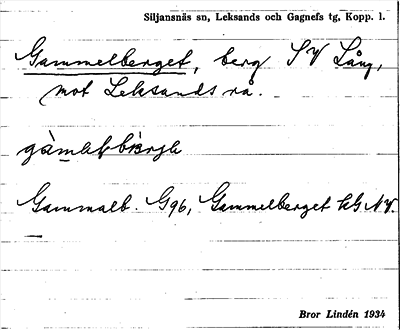 Siljansnäs sn, Leksands och Gagnefs tg, Kopp. l.
Gammelberget, berg SV Lång,
mot Leksands rå.
Gammalb. G96, Gammelberget hG NV.
Bror Lindén 1934